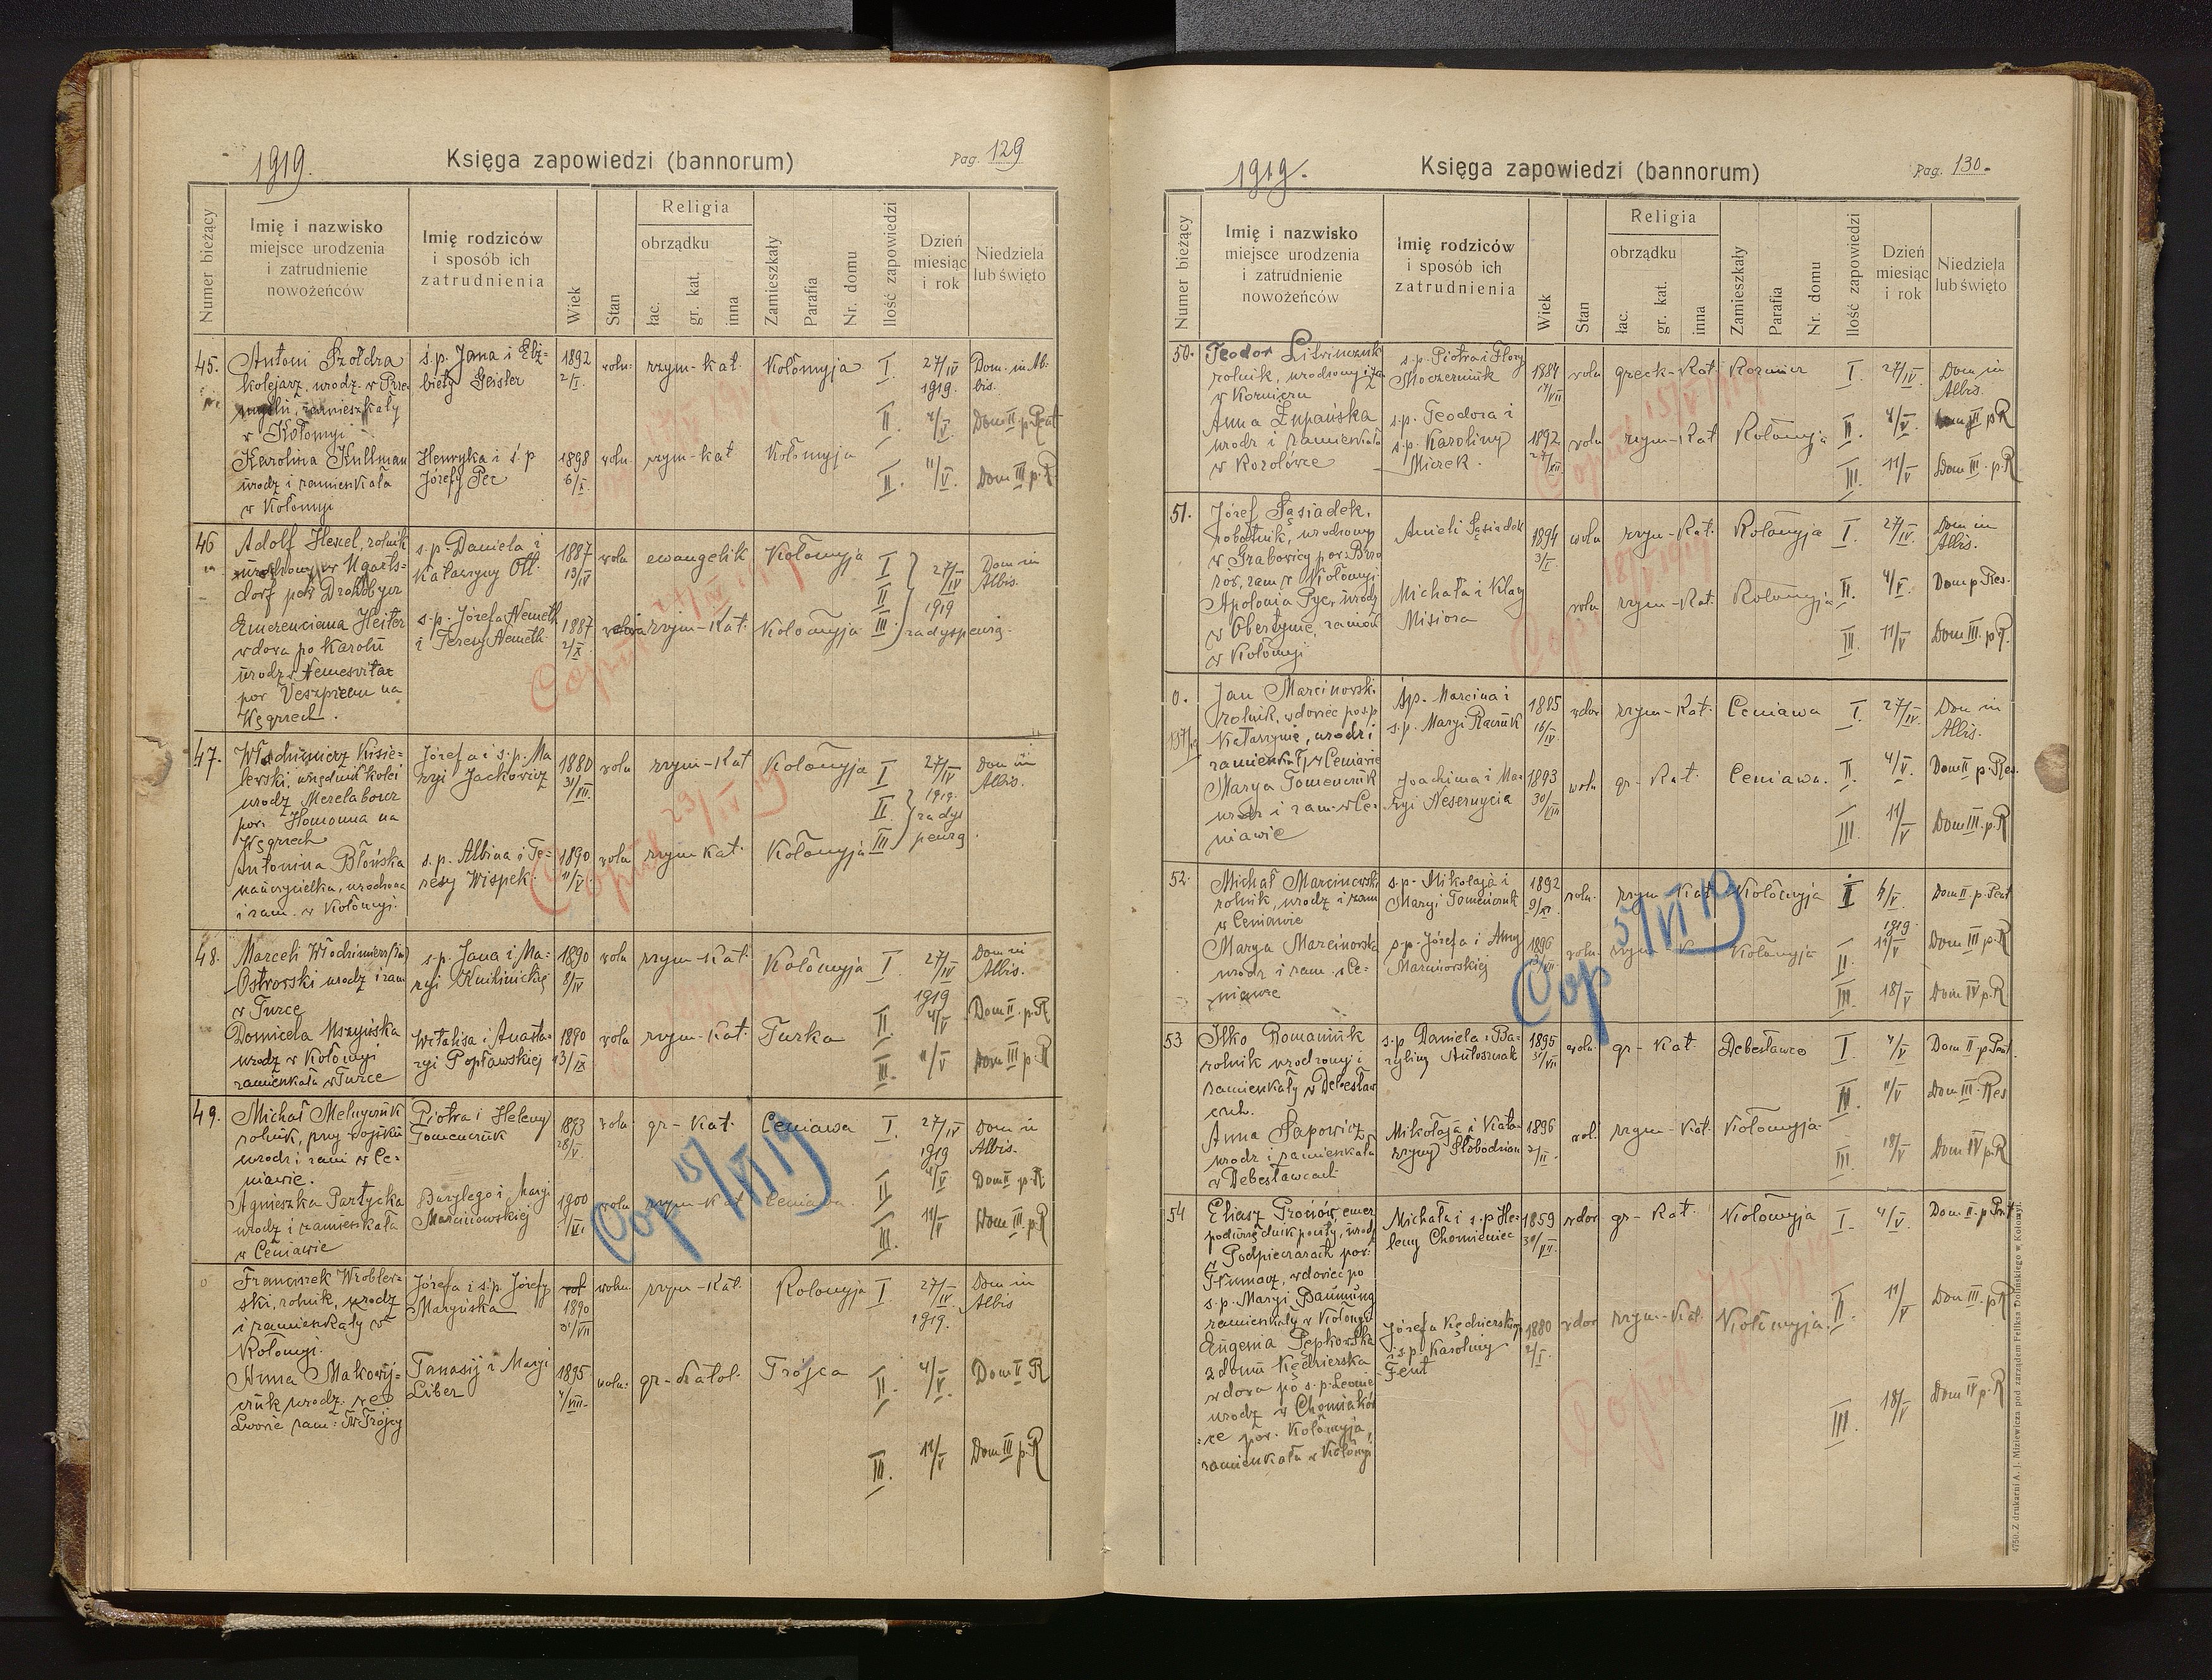 1919.
Księga zapowiedzi (bannorum)
Pag. 129
Numer bieżący
Imię i nazwisko
miejsce urodzenia
i zatrudnienie
nowożeńców
Imię rodziców
i sposób ich
zatrudnienia
Wiek
Stan
Religia
obrządku
łac.
gr. kat.
inna
Zamieszkały
Parafia
Nr. domu
Ilość zapowiedzi
Dzień
miesiąc
i rok
Niedziela
lub święto
45.
Antoni Szołdra
kolejarz, urodz. w Prze-
myślu, zamieszkały
w Kołomyi
ś.p. Jana i Elż-
biety Geisler
1892
2/I.
woln.
rzym-kat.
Kołomyja
I.
27/IV
1919.
Dom. in Al-
bis.
II.
4/V.
Dom II p. Pent
Karolina Kullman
urodz i zamieszkała
w Kołomyi
Henryka i ś.p
Józefy Pec
1898
6/X.
woln.
rzym-kat
Kołomyja
II.
11/V.
Dom III p. P.
46
Adolf Hexel, rolnik
urodzony w Ugarts-
dorf pow Drohobycz
s.p. Daniela i
Katarzyny Ott.
1887
13/IV
woln
ewangelik
Kołomyja
I
II
III
27/IV
1919
Dom in
Albis.
za dyspensą.
Emerenciana Heiter
wdowa po Karolu
urodz. Nemesvitaz
pow Veszprem na
Węgrzech.
s.p. Józefa Nemeth
i Teresy Nemeth.
1887
2/X.
rzym-Kat.
Kołomyja
47.
Włodzimierz Kisie-
lewski, urzędnik kolei
urodz Mezelaborcz
pow. Homonna na
Węgrzech
Józefa i s.p. Ma
ryi Jackowicz
1880
31/VII.
woln
rzym-Kat
Kołomyja
I
II.
III
27/IV
1919.
za dys
pensą
Dom in
Albis.
Antonina Błońska
nauczycielka, urodzona
i zam. w Kołomyi.
s.p. Albina i Te-
resy Wispek
1890
11/V.
woln
rzym kat.
Kołomyja
48.
Marceli Włodzimierz
Ostrowski urodz i zam
w Turce
s.p. Jana i Ma-
ryi Kuchinickiej
1890
8/IV
woln
rzym-Kat.
Kołomyja
I.
27/IV
1919
Dom in
Albis.
II.
4/V
Dom II. p. R
Domicela Uszyńska
urodz w Kołomyi
zamieszkała w Turce
Witalisa i Anasta-
zyi Popławskiej
1890
13/IX
woln
rzym-Kat.
Turka
III.
11/V
Dom III p R
49.
Michał Melnyczuk
rolnik, przy wojsku
urodz i zam w Ce-
niawie.
Piotra i Heleny
Tomenczuk
1893
28/V.
woln.
gr-Kat.
Ceniawa
I.
27/IV
1919
Dom in
Albis.
II
4/V
Dom II p. R
Agnieszka Partycka
urodz i zamieszkała
w Ceniawie
Bazylego i Maryi
Marcinowskiej
1900
woln
rzym-Kat
Ceniawa.
III.
11/V
Dom III. p. R
Franciszek Wroblew-
ski, rolnik, urodz
i zamieszkały w
Kołomyi.
Józefa i s.p. Józefy
Maryńska
1890
31/VII
woln.
rzym-Kat.
Kołomyja
I
27/IV.
1919.
Dom in
Albis
Anna Makowij-
czuk urodz. we
Lwowie zam: w Trójcy
Tanasij i Maryi
Liber
1895
4/VIII.
woln.
gr-katol.
Trójca
II.
4/V.
Dom II R
III.
11/V
Dom III p. R
Cop 15/VI 19
1919.
Księga zapowiedzi (bannorum)
Pag. 130.
Numer bieżący
Imię i nazwisko
miejsce urodzenia
i zatrudnienie
nowożeńców
Imię rodziców
i sposób ich
zatrudnienia
Wiek
Stan
Religia
obrządku
łac.
gr. kat.
inna
Zamieszkały
Parafia
Nr. domu
Ilość zapowiedzi
Dzień
miesiąc
i rok
Niedziela
lub święto
50.
Teodor Litwinczuk
rolnik, urodzony i za
w Korniczu
s.p. Piotra i Flory
Skoczerniuk
1884
17/VII
woln
greck-Kat
Kornicz
I.
27/IV.
Dom in
Albis.
Anna Żupańska
urodz i zamieszkała
w Korolówce
s.p. Teodora i
s.p. Karoliny
Miczek.
1892
27/XII
woln
rzym-Kat
Kołomyja
II.
4/V.
p R
III.
11/V
Dom III. p. R
51.
Józef Sąsiadek,
robotnik, urodzony
w Grabowicy pow. Brzo
zów, zam w Kołomyi
Anieli Sąsiadek
1894
3/I.
woln
rzym-Kat.
Kołomyja
I.
27/IV.
Dom in
Albis.
Apolonia Pyc, urodz
w Obertynie, zamies
w Kołomyi
Michała i Klary
Misiora
woln
rzym-Kat.
Kołomyja
II.
4/V.
Dom p Res.
III.
11/V
Dom III. p. P.
0.
Jan Marcinowski
rolnik, wdowiec po s.p
Katarzynie, urodz i
zamieszkały w Ceniawie
śp. Marcina i
s.p. Maryi Raczuk
1885
16/IV.
wdow
rzym-Kat.
Ceniawa
I.
27/IV.
Dom in
Albis.
Marya Tomenczuk
urodz i zam. w Ce-
niawie
Joachima i Ma-
ryi Nesernycia
1893
30/VII
woln
gr-Kat.
Ceniawa.
II.
4/V.
Dom II p. Res.
III.
11/V
Dom III. p. R
52.
Michał Marcinowski
rolnik, urodz i zam
w Ceniawie
s.p. Mikołaja i
Maryi Tomenczuk
1892
9/XI.
woln.
rzym-Kat
Kołomyja
I
4/V.
1919
Dom II p. Pent
Marya Marcinowska
urodz i zam. w Ce-
niawie
s.p. Józefa i Anny
Marciniowskiej
1896
woln.
rzym-K
Kołomyja
II.
11/V
Dom III p. R
III.
18/V
Dom IV p. R
Cop 5/VI 19
53
Ilko Romaniuk
rolnik urodzony i
zamieszkały w Debesław
cach.
s.p. Daniela i Pa-
Antoszczak
1895
31/VII
woln.
gr-Kat.
Debesławce
I.
4/V
Dom II p Pent.
II.
11/V
Dom III. Res
Anna Sapowicz
urodz i zamieszkała
w Debesławcach
Mikołaja i Kata-
rzyny Słobodzian
1896
2/II.
wol.
rzym-Kat.
Kołomyja.
III.
18/V
Dom IV p. R
54
Eliasz Proniów, emer
podurzędnik poczty, urodz
w Podpieczarach pow.
Tłumacz, wdowiec po
s.p. Maryi Baumung
zamieszkały w Kołomyi
Michała i s.p He-
leny Chomieniec
1859
30/VII.
wdow
gr-Kat.
Kołomyja
I.
4/V.
Dom. II. p. Pent
II.
11/V
Dom III. p R
Eugenia Pępkowska
z domu Kędzierska
wdowa po s.p. Leonie
urodz w Chomiaków
ce pow. Kołomyja,
zamieszkała w Kołomyi
Józefa Kędzierskiego
i s.p. Karoliny
Fent
1880
2/I.
wdow
rzym-Kat.
Kołomyja.
III.
18/V
Dom IV p. R
4750. Z drukarni A. J. Miziewicza pod zarządem Feliksa Dolińskiego w Kołomyi.